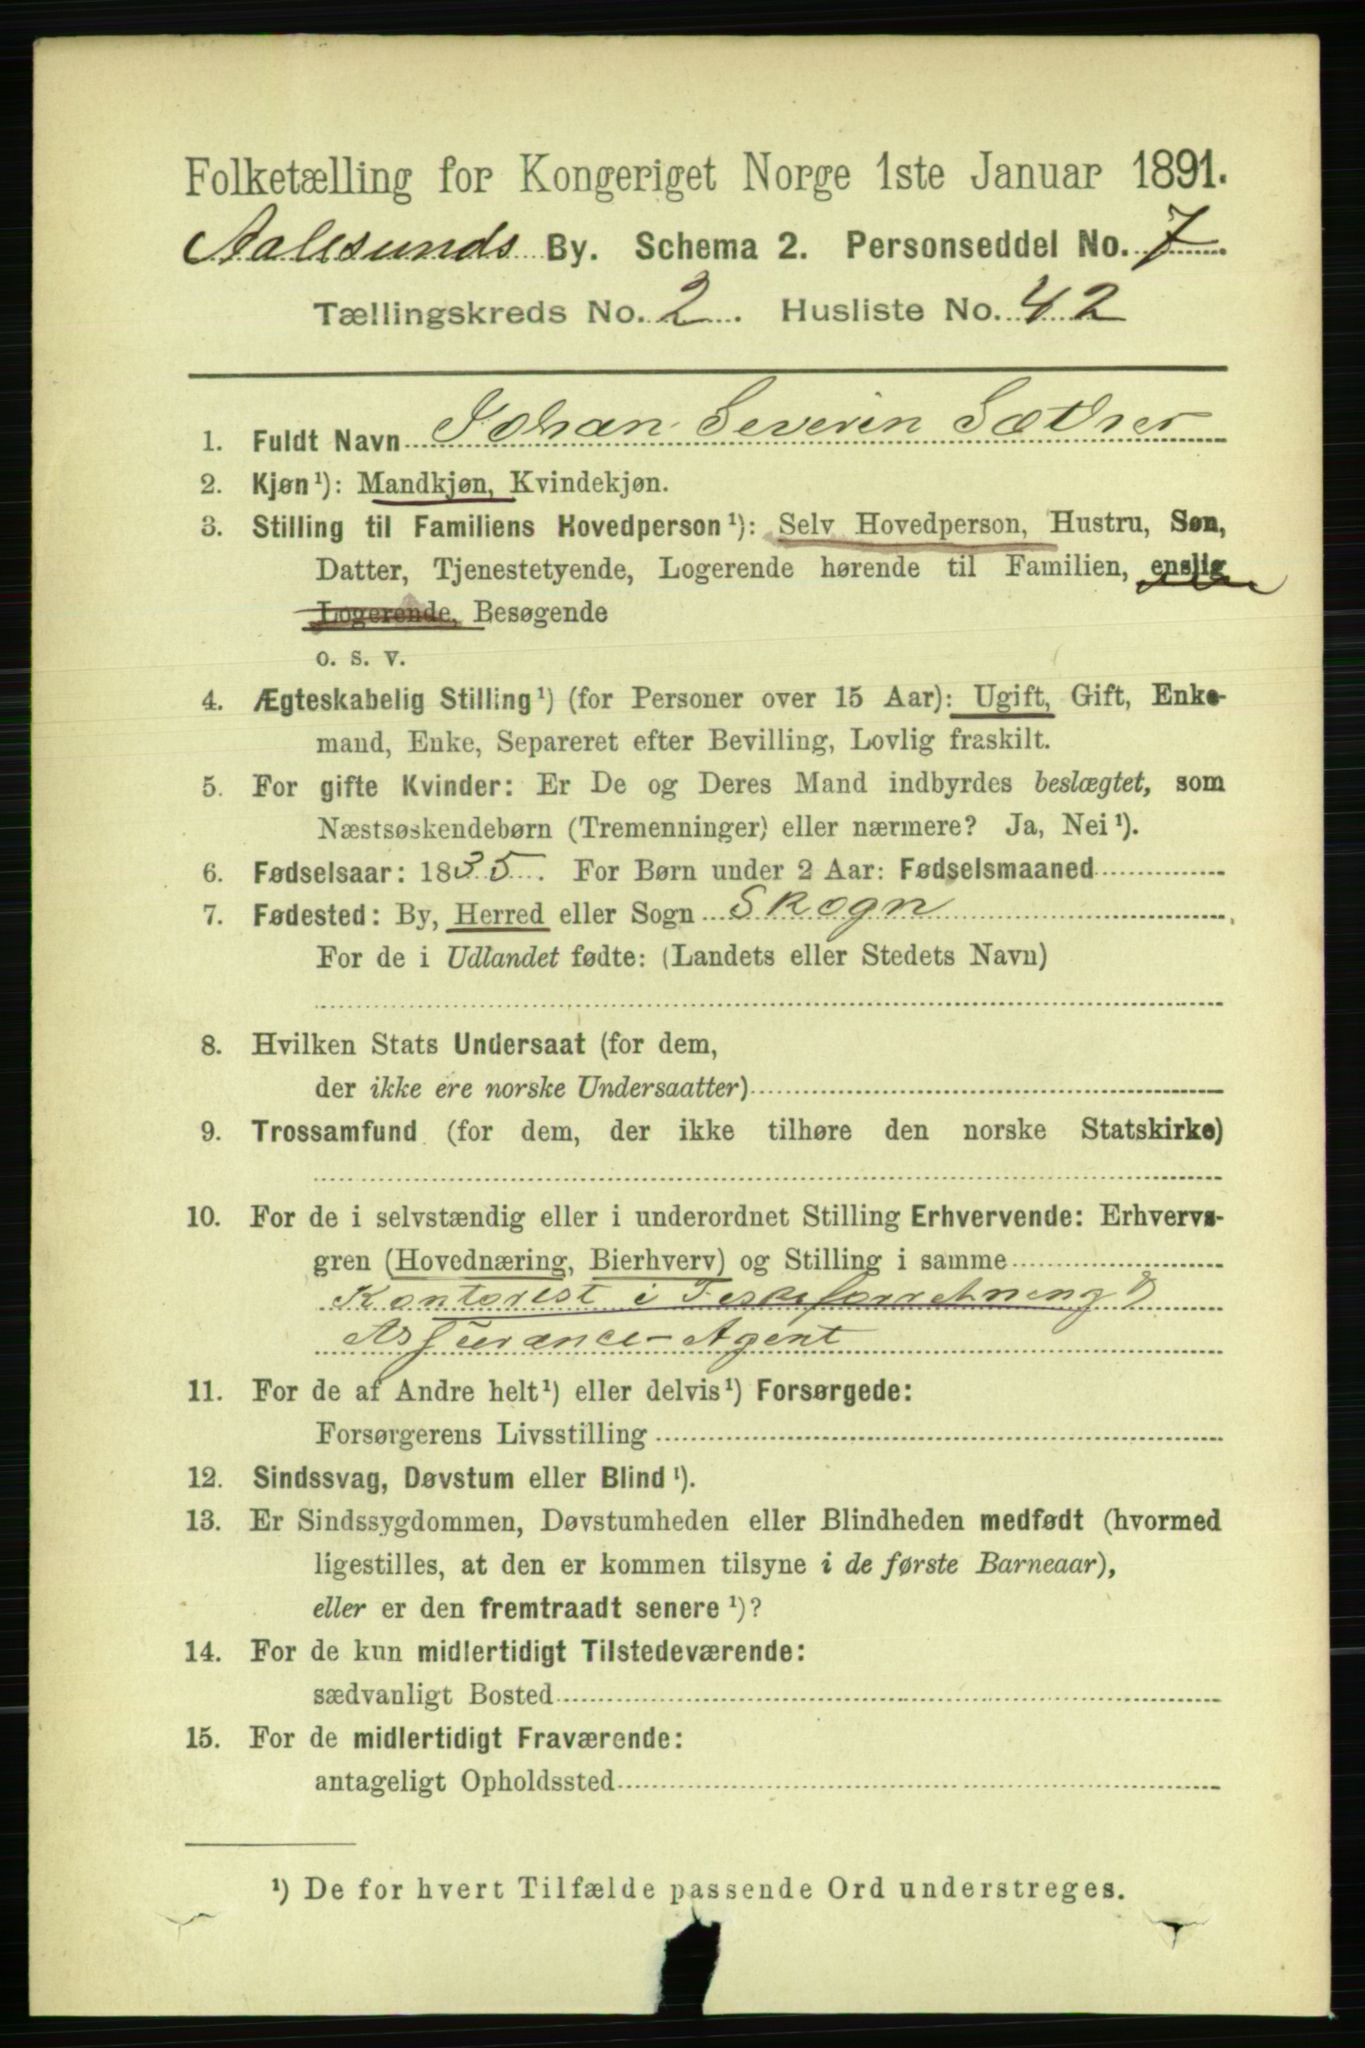 Folketælling for Kongeriget Norge 1ste Januar 1891.
Aalesunds By. Schema 2. Personseddel No. 7.
Tællingskreds No. 2. Husliste No. 42
1. Fuldt Navn Johan Severin Sæther
2. Kjøn¹): Mandkjøn, Kvindekjøn.
3. Stilling til Familiens Hovedperson¹): Selv Hovedperson, Hustru, Søn,
Datter, Tjenestetyende, Logerende hørende til Familien, enslig
Logerende, Besøgende
o. s. v.
4. Ægteskabelig Stilling¹) (for Personer over 15 Aar): Ugift, Gift, Enke-
mand, Enke, Separeret efter Bevilling, Lovlig fraskilt.
5. For gifte Kvinder: Er De og Deres Mand indbyrdes beslægtet, som
Næstsøskendebørn (Tremenninger) eller nærmere? Ja, Nei¹).
6. Fødselsaar: 1835. For Børn under 2 Aar: Fødselsmaaned
7. Fødested: By, Herred eller Sogn Skogn
For de i Udlandet fødte: (Landets eller Stedets Navn)
8. Hvilken Stats Undersaat (for dem,
der ikke ere norske Undersaatter)
9. Trossamfund (for dem, der ikke tilhøre den norske Statskirke)
10. For de i selvstændig eller i underordnet Stilling Erhvervende: Erhvervs-
gren (Hovednæring, Bierhverv) og Stilling i samme
Kontorist i Feskeforretning &
Assurance-Agent
11. For de af Andre helt¹) eller delvis¹) Forsørgede:
Forsørgerens Livsstilling
12. Sindssvag, Døvstum eller Blind¹).
13. Er Sindssygdommen, Døvstumheden eller Blindheden medfødt (hvormed
ligestilles, at den er kommen tilsyne i de første Barneaar),
eller er den fremtraadt senere¹)?
14. For de kun midlertidigt Tilstedeværende:
sædvanligt Bosted
15. For de midlertidigt Fraværende:
antageligt Opholdssted
¹) De for hvert Tilfælde passende Ord understreges.